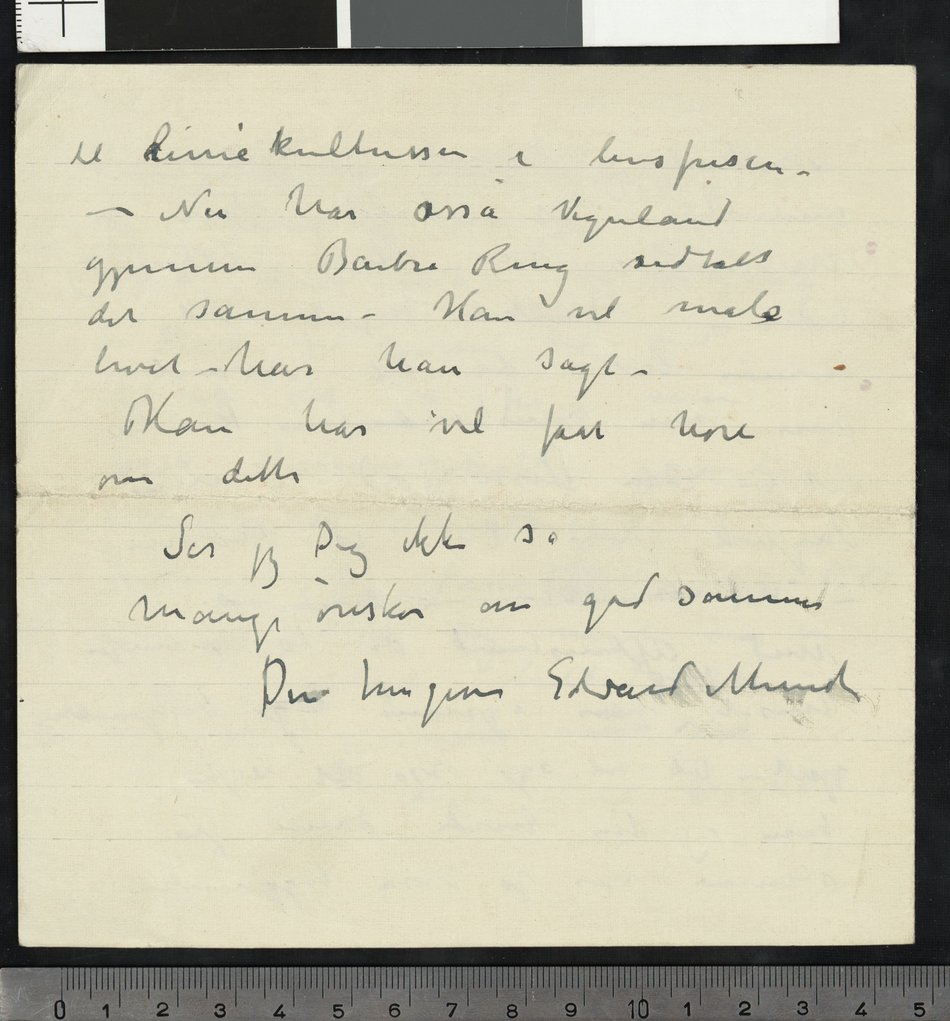 til Liniekultussen i livsfrisen –
– Nu har også Vigeland
gjennem Barbra Ring udtalt
det samme – Han vil male
livet – har han sagt –
Han har vel fåt høre
om dette
Ser jeg Dig ikke så
mange ønsker om god sommer
Din hengivne Edvard Munch
0 1 2 3 4 5 6 7 8 9 10 1 2 3 4 5